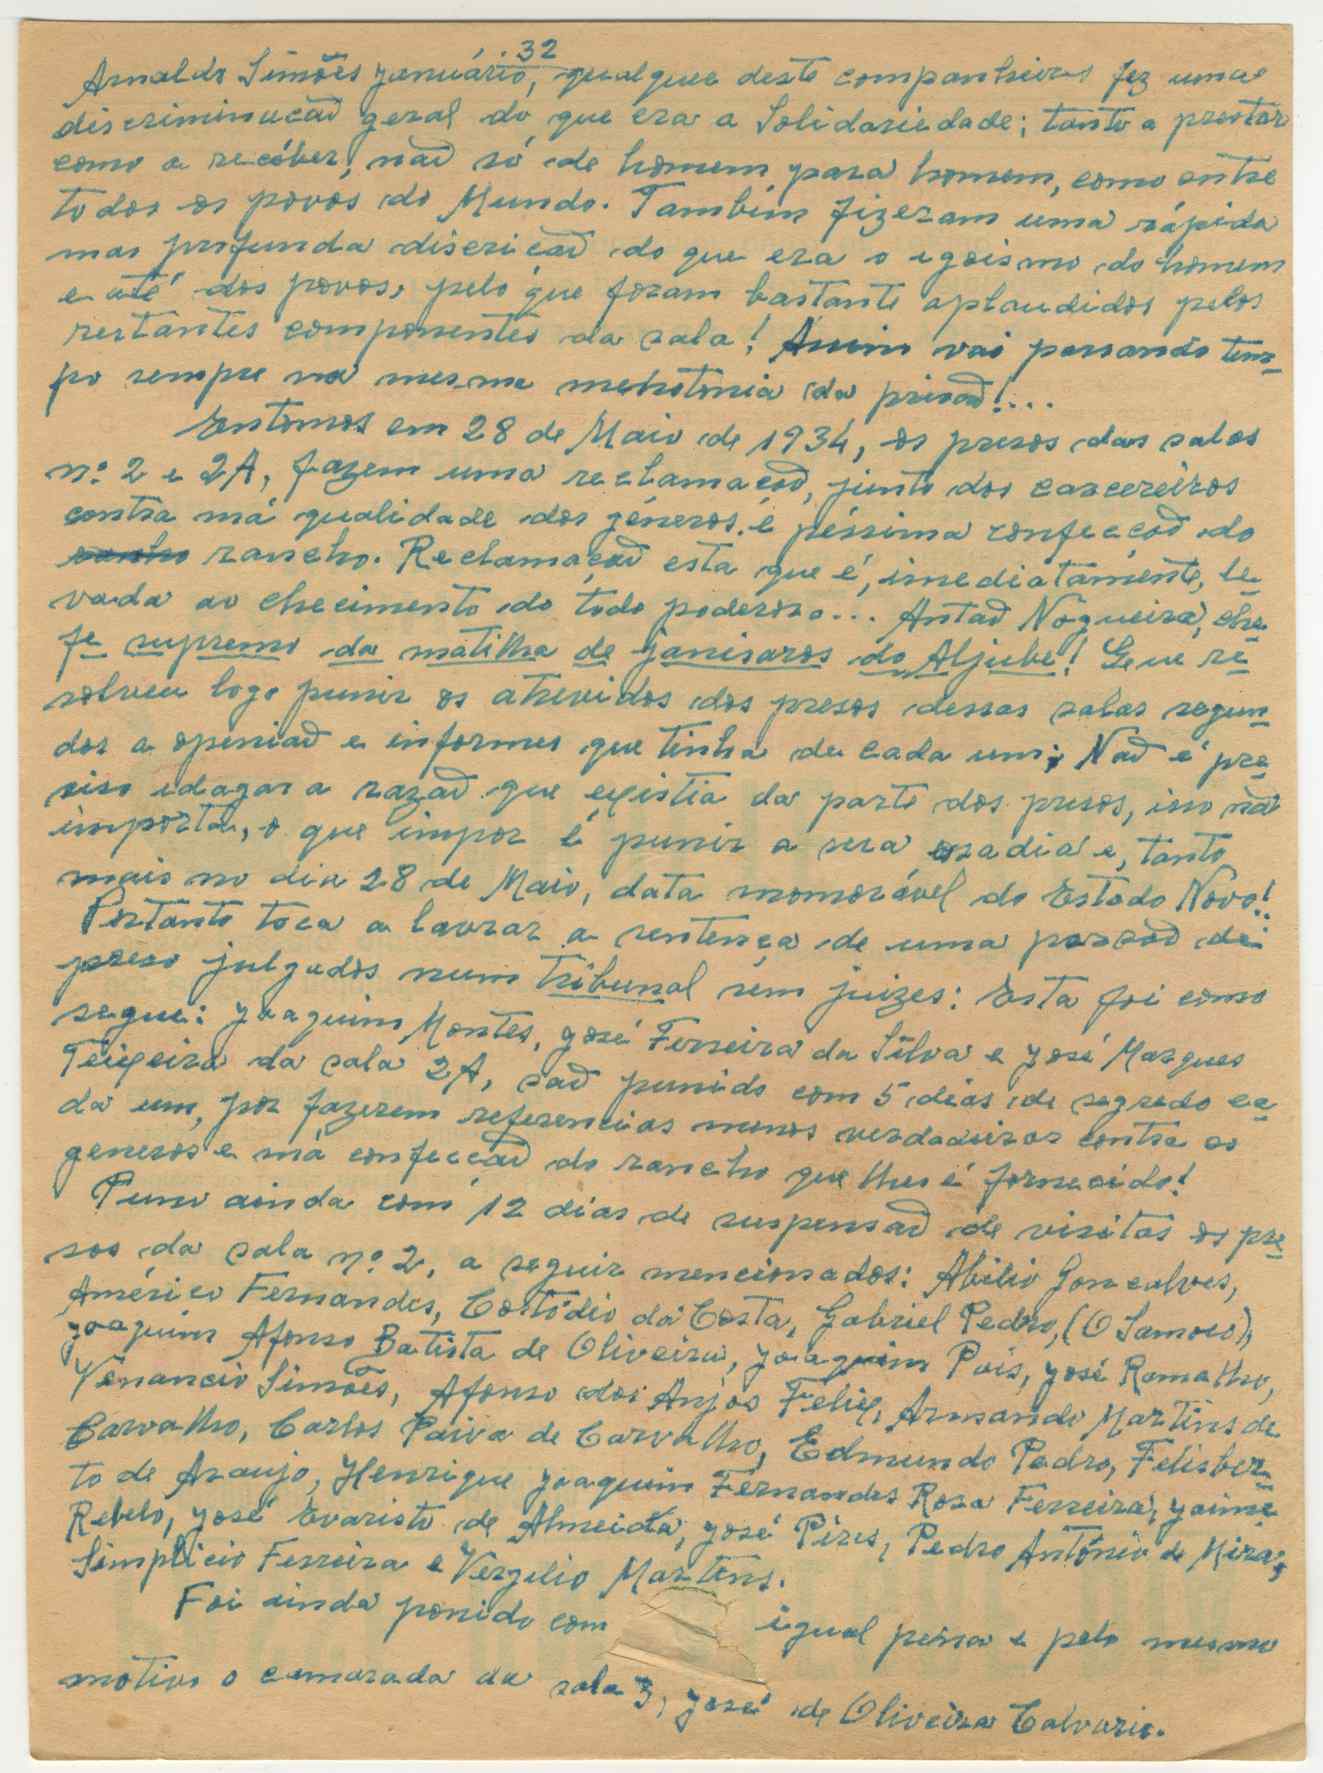 32
Arnaldo Simões Januário, qualquer deste companheiros fez uma
discriminacaõ geral do que era a Solidariedade; tanto a prestar
como a recéber, naõ só de homem para homem, como entre
todos os povos do Mundo. Também fizeram uma rápida
mas profunda discricaõ do que era o egoismo do homem
e até dos povos, pelo que foram bastante aplaudidos pelos
restantes componentes da sala! Assim vai passando tem-
po sempre na mesma monotonia da prisaõ!...
Entomos em 28 de Maio de 1934, os presos das salas
n.º 2 e 2A, fazem uma reclamaçaõ, junto dos carcereiros
contra má qualidade dos géneros e péssima confecçaõ do
rancho. Reclamaçaõ esta que é, imediatamente, le-
vada ao checimento do todo poderoso... Antaõ Nogueira, che-
fe supremo da matilha de janisaros do Aljube! Que re-
solveu logo punir os atrevidos dos presos dessas salas segun-
dos a openiaõ e informes que tinha de cada um; Naõ é pre-
ciso idagar a razaõ que existia da parte dos presos, isso na
importa, o que impor é punir a sua osadia e, tanto
mais no dia 28 de Maio, data momorável do Estado Novo!
Portanto toca a lavrar a sentença de uma porsaõ de
preso julgados num tribunal sem juizes: Esta foi como
segue: Joaquim Montes, José Ferreira da Silva e José Marques
Teixeira da sala 2A, saõ punido com 5 dias de segredo ca-
da um, por fazerem referencias menos verdadeiras contra os
generos e má confeccaõ do rancho que lhes é fornecido!
Puno ainda com 12 dias de suspensaõ de visitas os pre-
sos da sala n.º 2, a seguir mencionados: Abilio Goncalves,
Américo Fernandes, Costódio da Costa, Gabriel Pedro, (O Samoco),
Joaquim Afonso Batista de Oliveira, Joaquim Pais, José Ramalho,
Venancio Simões, Afonso dos Anjos Felix, Armando Martins de
Carvalho, Carlos Paiva de Carvalho, Edmundo Pedro, Felisber-
to de Araujo, Henrique Joaquim Fernandes Rosa Ferreira, Jaime
Rebelo, José Evaristo de Almeida, José Pires, Pedro António de Mira,
Simplicio Ferreira e Vergilio Martins.
Foi ainda ponido com igual pena e pelo mesmo
motivo o camarada da sala 3, José de Oliveira Calvario.